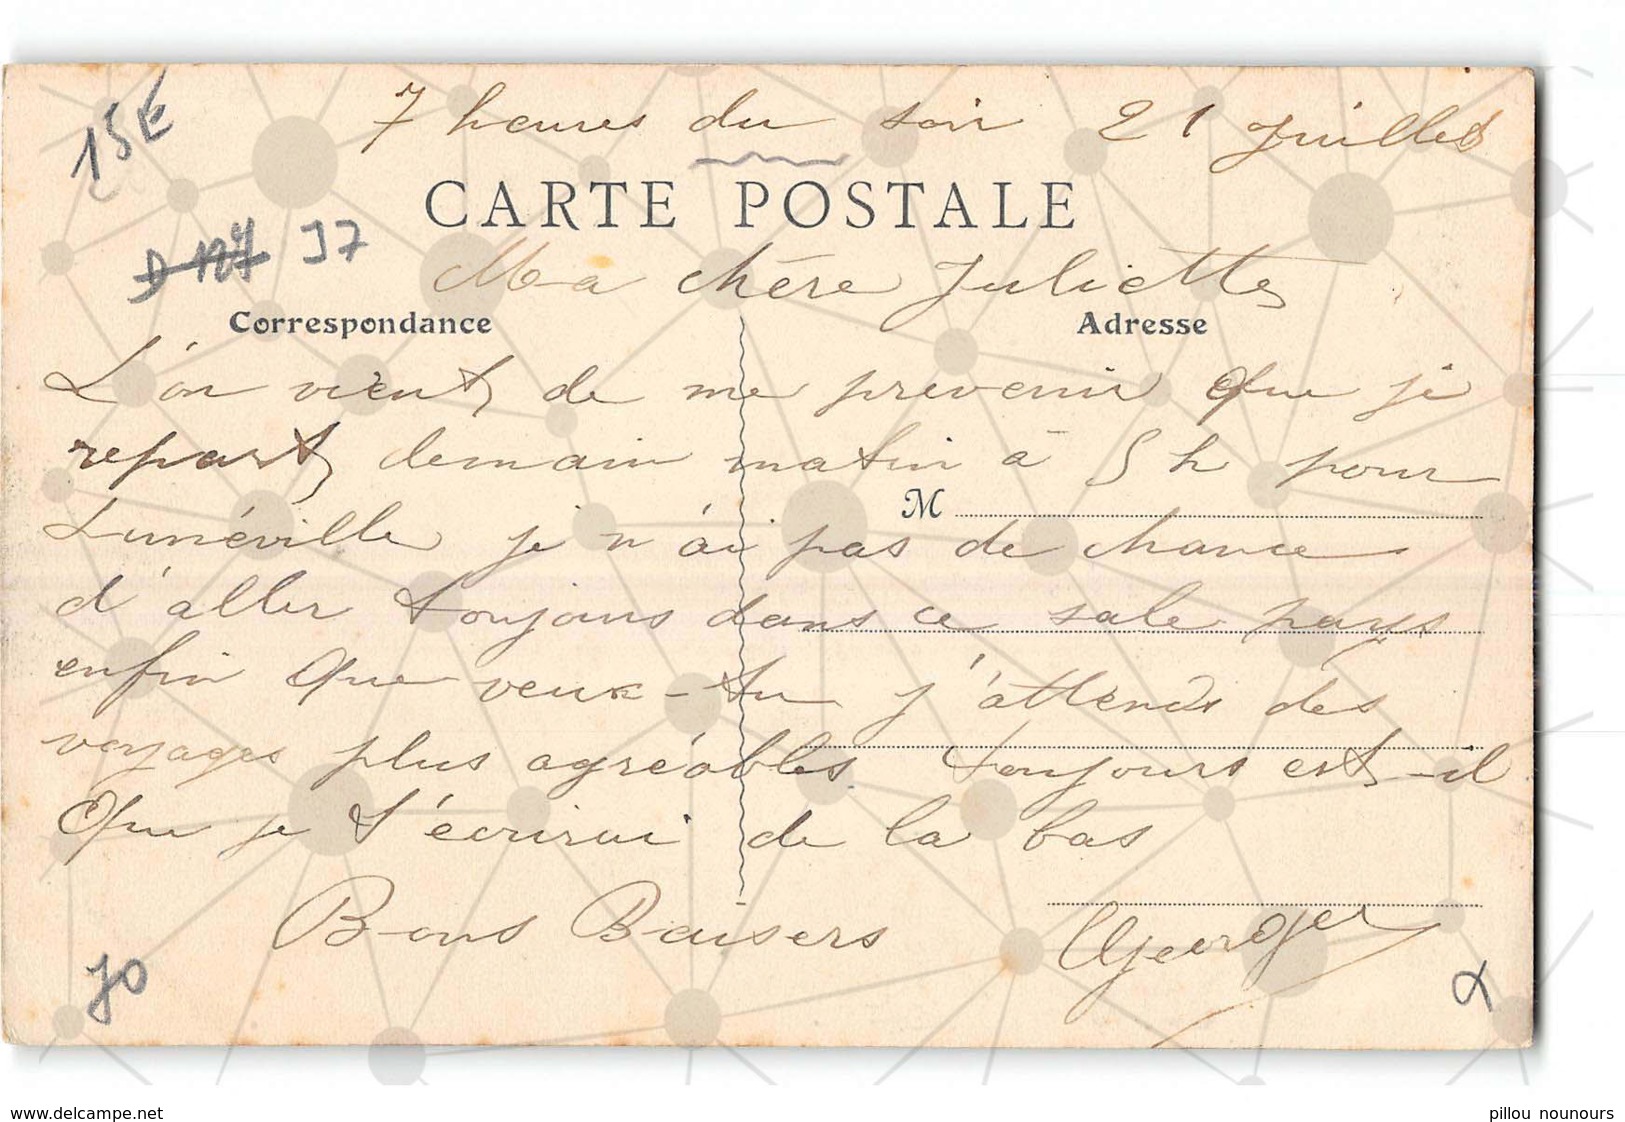 15€
7 heures du soir 21 Juillet
CARTE POSTALE
D 127 J7
Ma chère Juliette
Correspondance Adresse
L'on vient de me prevenir que je
repart demain matin à 5 h pour
M
Lunéville je n'ai pas de chance
d'aller toujours dans ce sale pays
enfin que veux-tu j'attends des
voyages plus agréables toujours est-il
que je t'écrirai de la bas
Bons Baisers Georges
www.delcampe.net
pillou nounours